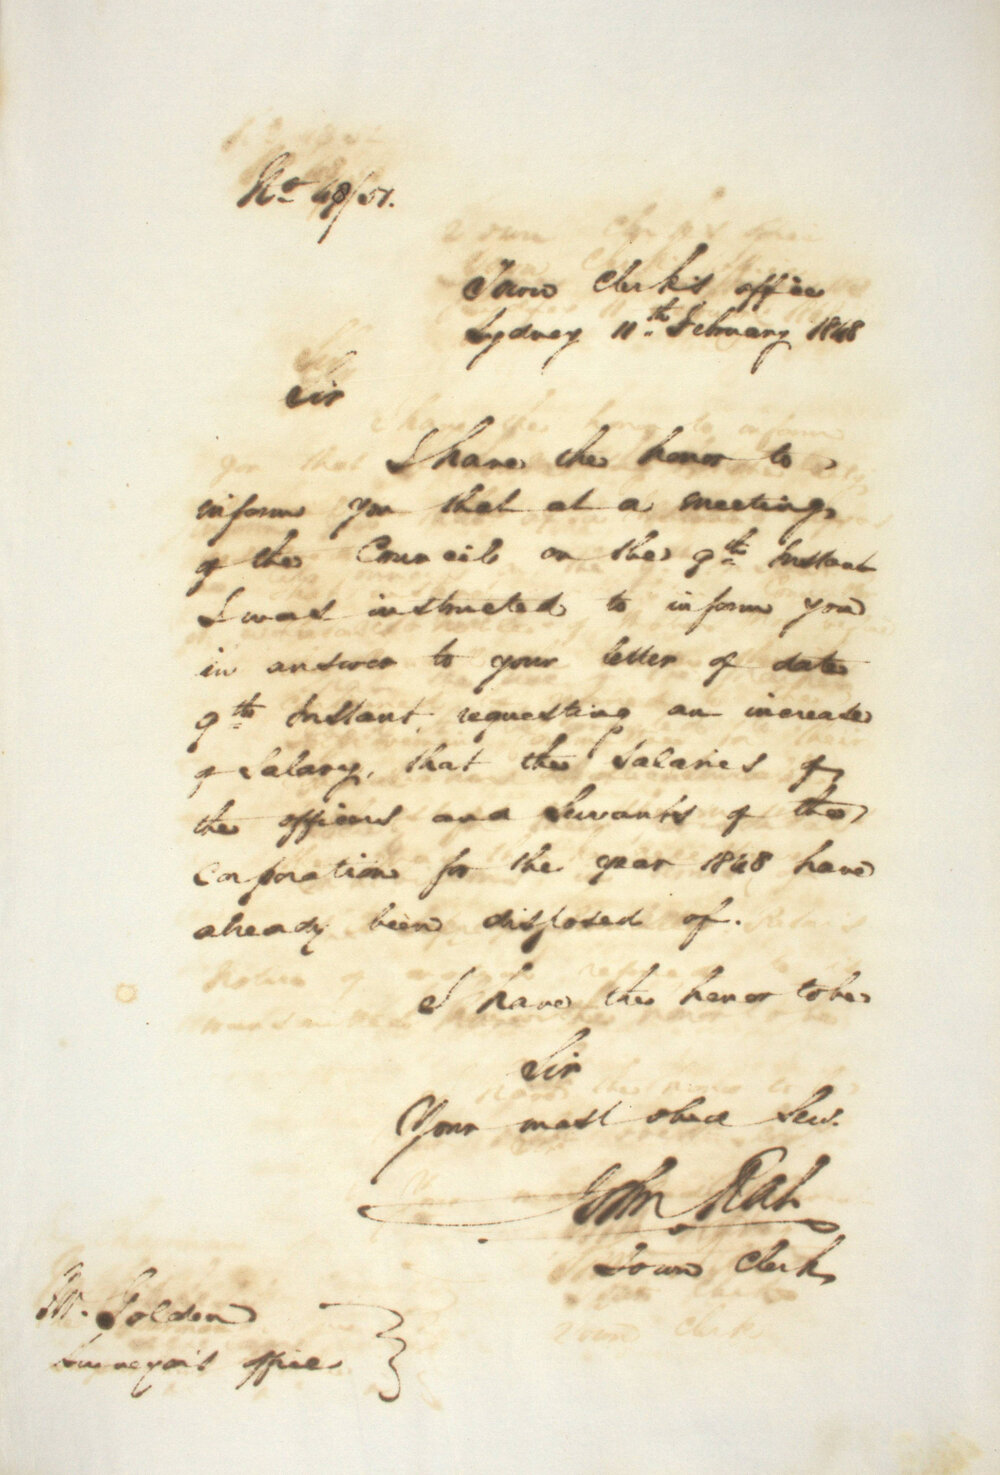 No 48/51.
Town Clerk's office
Sydney 11th February 1848
Sir
I have the honor to
inform you that at a meeting
of the Council on the 9th Instant
I was instructed to inform you
in answer to your letter of date
9th Instant requesting an increase
of Salary, that the Salaries of
the officers and Servants of the
Corporation for the year 1848 have
already been disposed of.
I have the honor to be
Sir
Your most obed Ser.
John
Town Clerk
Mr. Golden
Surveyor's office